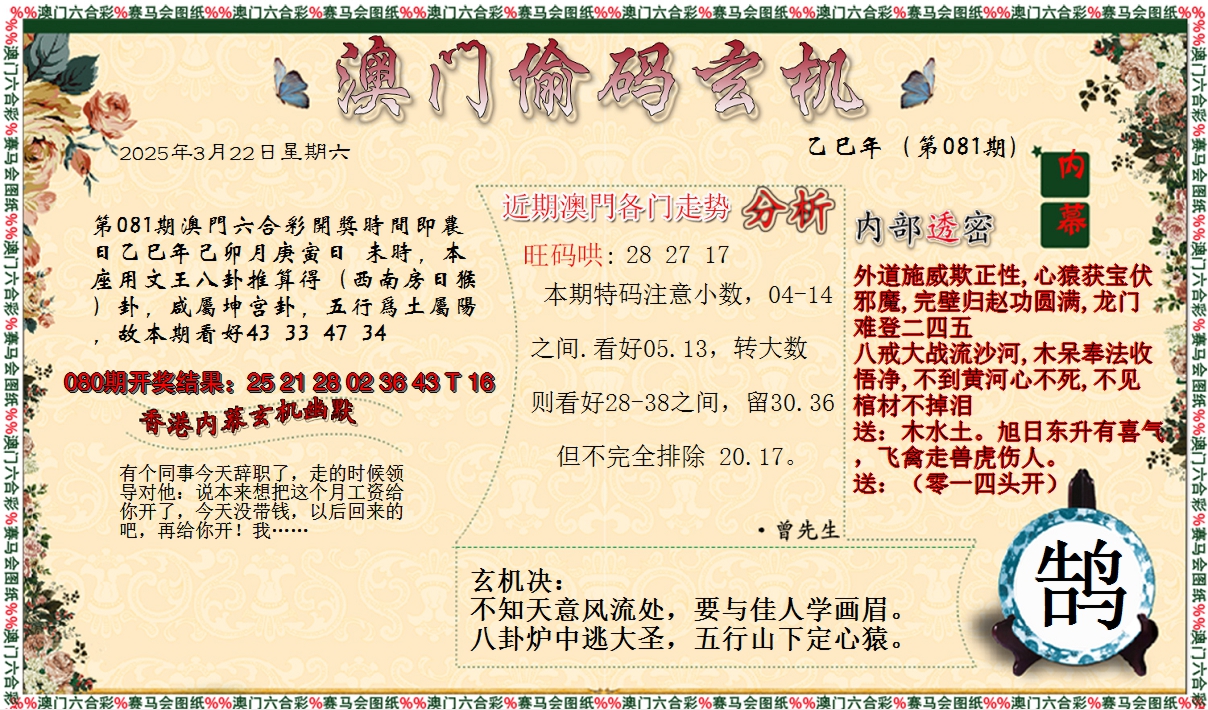 %%澳门六合彩%赛马会图纸%%澳门六合彩%赛马会图纸%%澳门六合彩%赛马会图纸%%澳门六合彩%赛马会图纸%%澳门六合彩%赛马会图纸%%澳门六合彩%赛马会图纸%%
澳门偷码玄机
2025年3月22日星期六
乙巳年（第081期）
内
幕
第081期澳門六合彩開獎時間即農
日乙巳年己卯月庚寅日 未時，本
座用文王八卦推算得（西南房日猴
）卦，咸屬坤宫卦，五行爲土屬陽
，故本期看好43 33 47 34
080期开奖结果：25 21 28 02 36 43 T 16
香港内幕玄机幽默
有个同事今天辞职了，走的时候领
导对他：说本来想把这个月工资给
你开了，今天没带钱，以后回来的
吧，再给你开！我……
近期澳門各门走势 分析
旺码哄: 28 27 17
本期特码注意小数，04-14
之间.看好05.13，转大数
则看好28-38之间，留30.36
但不完全排除 20.17。
·曾先生
内部透密
外道施威欺正性,心猿获宝伏
邪魔,完壁归赵功圆满,龙门
难登二四五
八戒大战流沙河,木呆奉法收
悟净,不到黄河心不死,不见
棺材不掉泪
送：木水土。旭日东升有喜气
，飞禽走兽虎伤人。
送：（零一四头开）
玄机决：
不知天意风流处，要与佳人学画眉。
八卦炉中逃大圣，五行山下定心猿。
鹄
%%澳门六合彩%赛马会图纸%%澳门六合彩%赛马会图纸%%澳门六合彩%赛马会图纸%%澳门六合彩%赛马会图纸%%澳门六合彩%赛马会图纸%%澳门六合彩%赛马会图纸%%